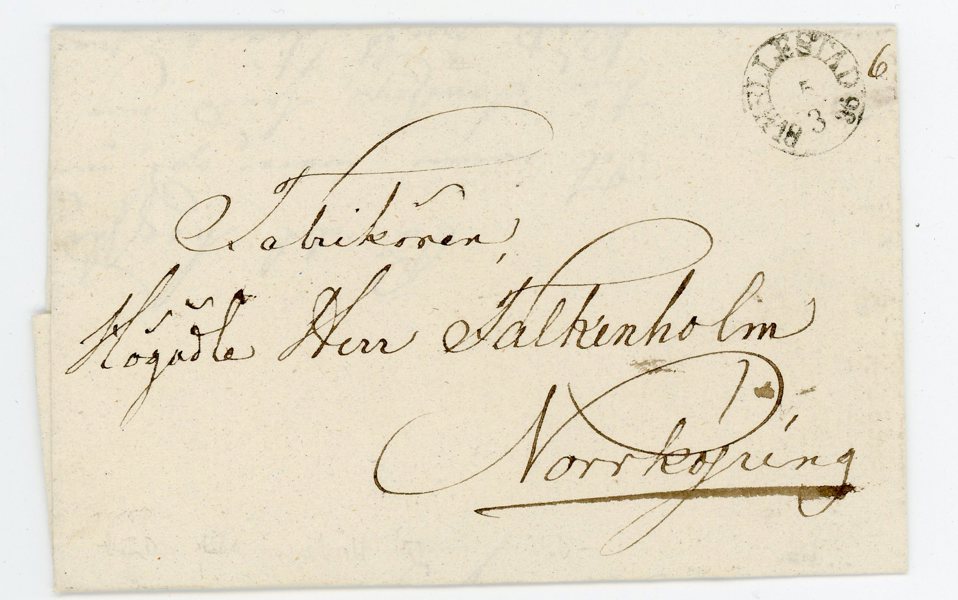 HELLESTAD
5
3
18 36
6
Fabrikören,
Högädle Herr Falkenholm
Norrköping